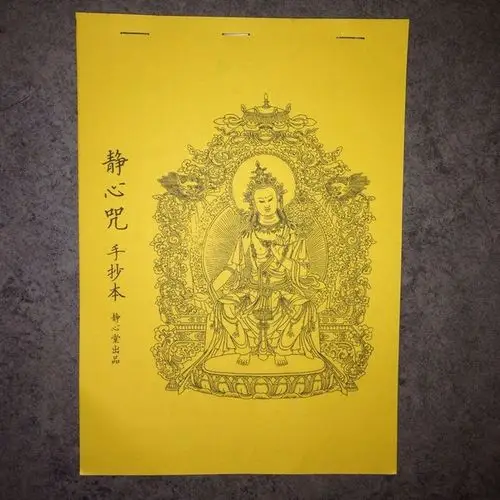 静心咒
手抄本
静心堂出品